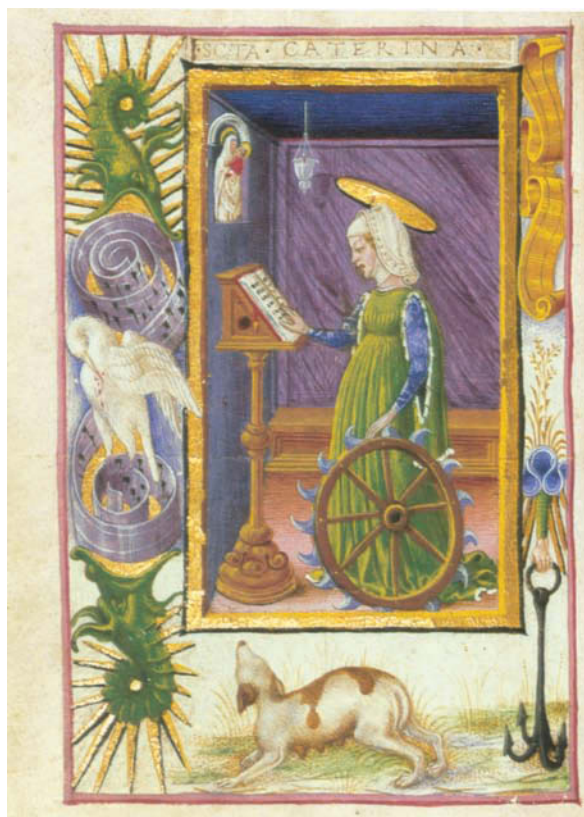 ·SC̄TA · CATERINA·